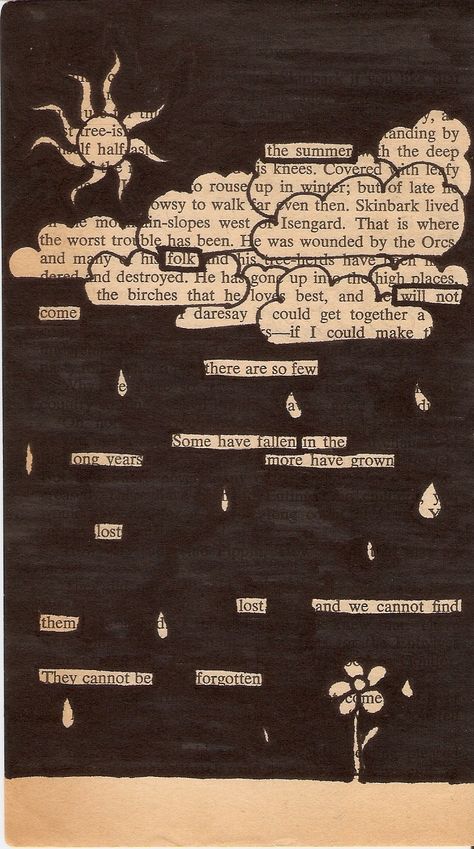 the summer
h the deep
s knees. Covered with leafy
o rouse up in winter; but of late he
owsy to walk far even then. Skinbark lived
the mountain-slopes west of Isengard. That is where
the worst trouble has been. He was wounded by the Orcs
and many of his folk and his tree-herds have been
dered and destroyed. He has gone up into the high places,
the birches that he loves best, and he will not
come daresay I could get together a
s—if I could make th
there are so few
Some have fallen in the
ong years more have grown
lost
lost and we cannot find
them
They cannot be forgotten
come